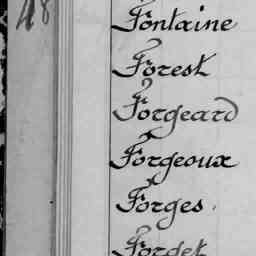 48
Fontaine
Forest
Forgeard
Forgeoux
Forges.
Forget